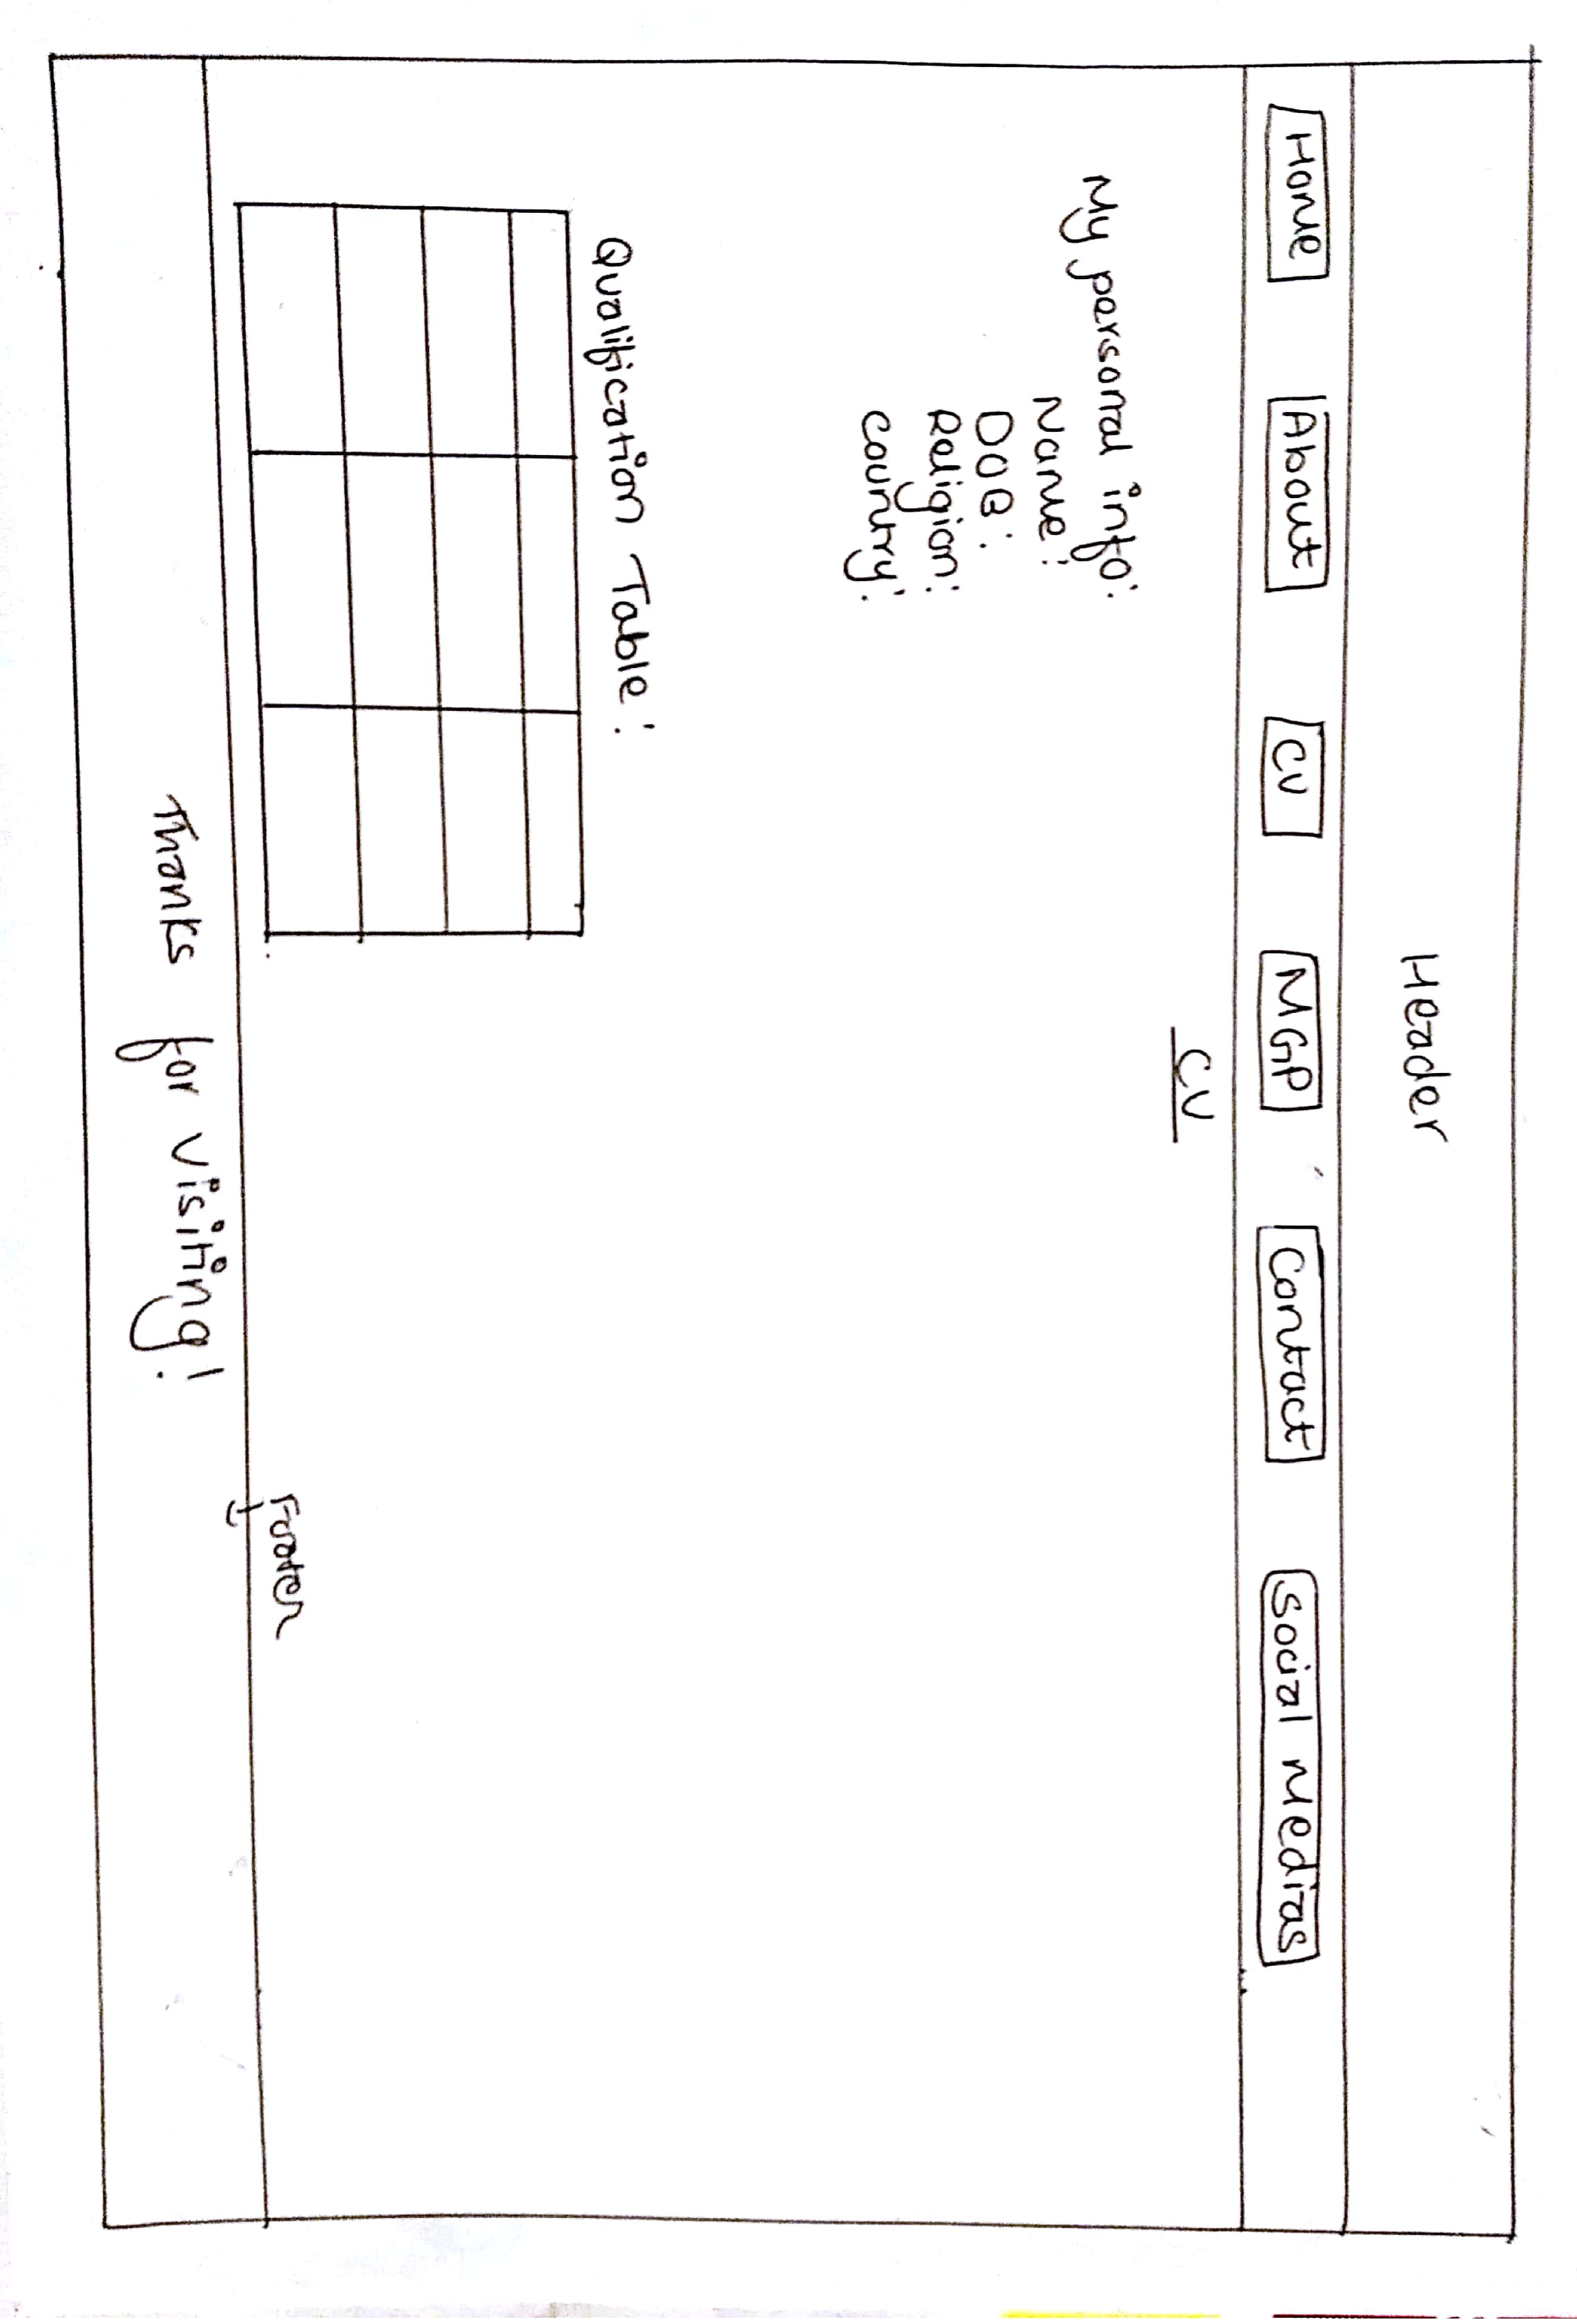 Header
Home About CV MGP Contact Social Medias
CV
My personal info:
Name:
DOB:
Religion:
Country:
Qualification Table:
Footer
Thanks for visiting!